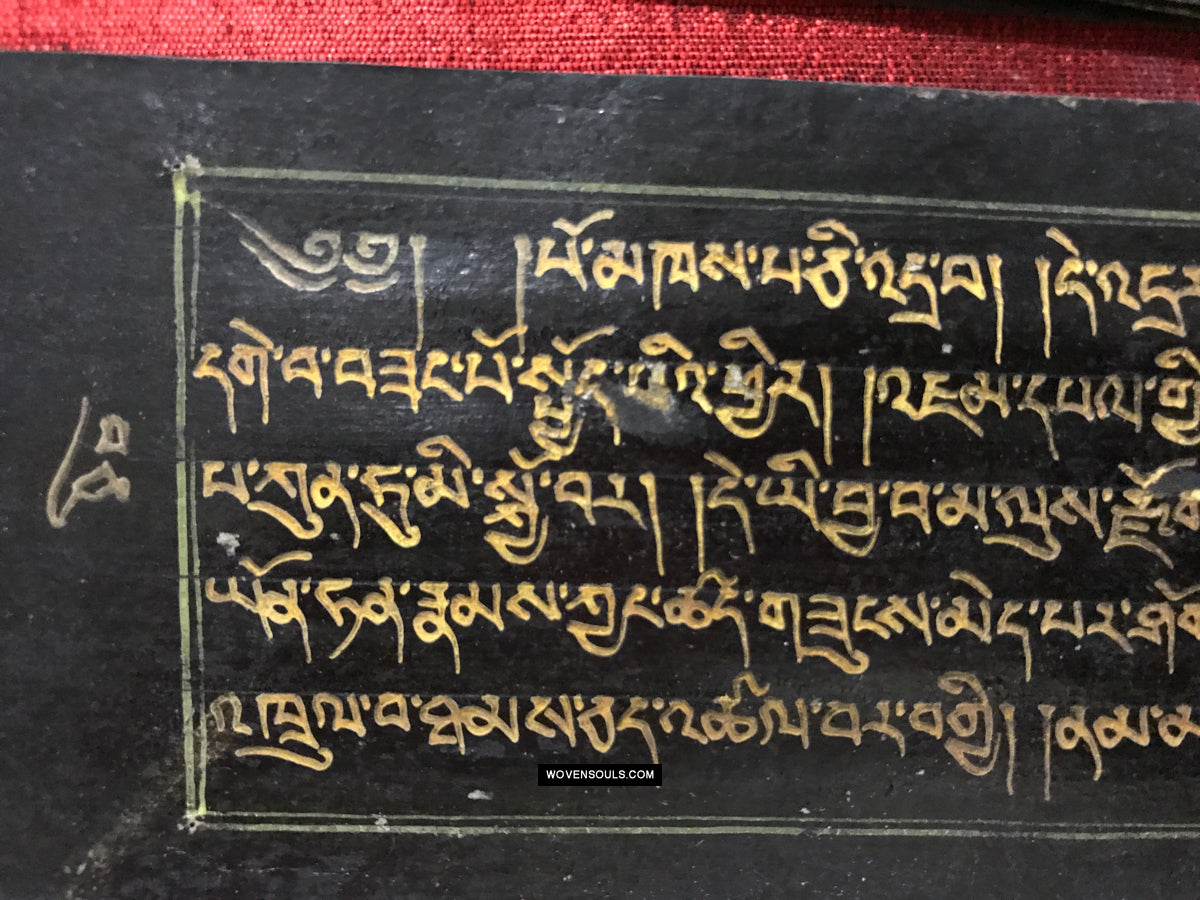 ༄༅། །པོ་མཁས་པ་ཅི་འདྲ་བ། །དེ་འདྲ
དགེ་བ་བཟང་པོ་སྤྱོད་པའི་ཕྱིར། །འཇམ་དཔལ་གྱི
པ་ཀུན་ཏུ་མི་སྐྱོ་བར། །དེ་ཡི་བྱ་བ་མ་ལུས་རྫོག
ཡོན་ཏན་རྣམས་ཀྱང་ཚད་གཟུངས་མེད་པར་ཤོ
འཁྲུལ་བ་ཐམས་ཅད་འཚལ་བར་བགྱི། །ནམ་མ
WOVENSOULS.COM